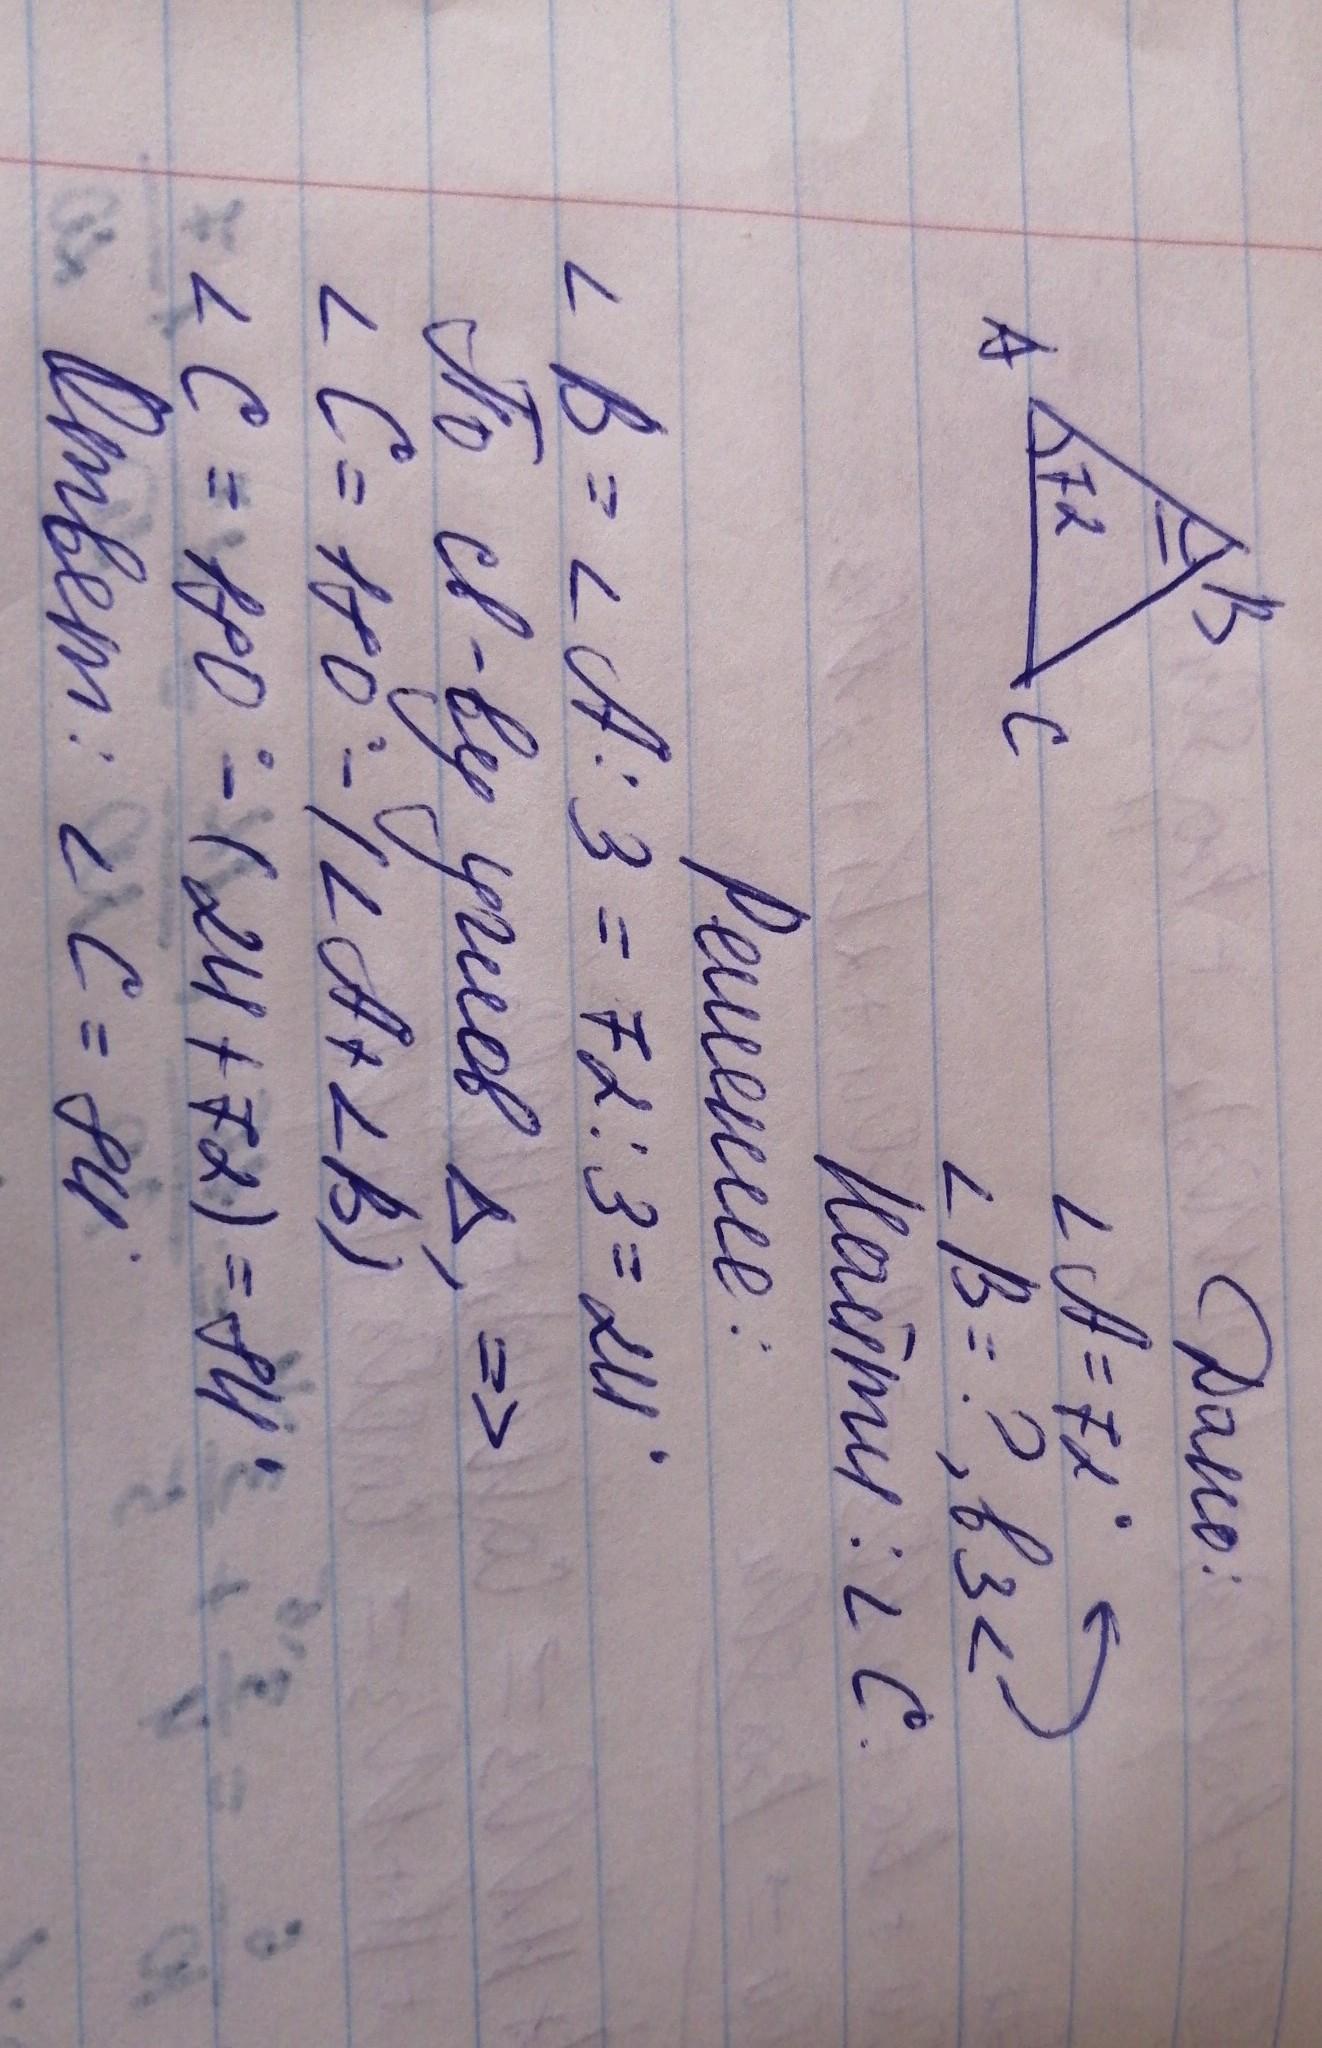 Дано:
B
∠A = 72°
72
A
C
∠B = ?, в 3 <
Найти: ∠C.
Решение:
∠B = ∠A : 3 = 72 : 3 = 24°
По св-ву углов Δ, =>
∠C = 180° - (∠A + ∠B)
∠C = 180° - (24 + 72) = 84°.
Ответ: ∠C = 84°